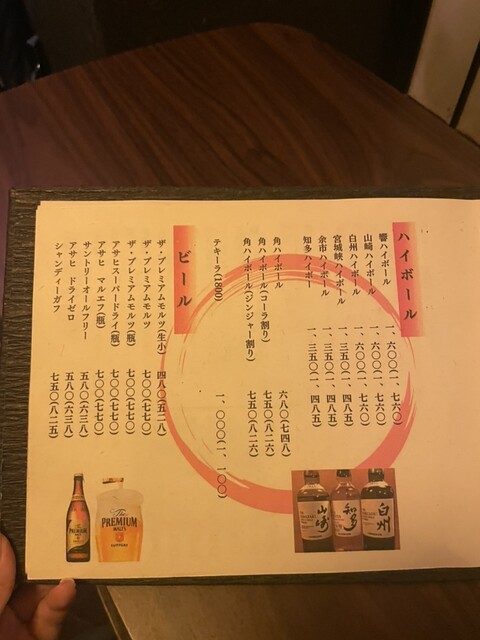 ハイボール
響ハイボール 一、六〇〇(一、七六〇)
山崎ハイボール 一、六〇〇(一、七六〇)
白州ハイボール 一、六〇〇(一、七六〇)
宮城峡ハイボール 一、三五〇(一、四八五)
余市ハイボール 一、三五〇(一、四八五)
知多ハイボー 一、三五〇(一、四八五)
角ハイボール 六八〇(七四八)
角ハイボール(コーラ割り) 七五〇(八二六)
角ハイボール(ジンジャー割り) 七五〇(八二六)
テキーラ(1800) 一、〇〇〇(一、一〇〇)
ビール
ザ・プレミアムモルツ(生小) 四八〇(五二八)
ザ・プレミアムモルツ 七〇〇(七七〇)
ザ・プレミアムモルツ(瓶) 七〇〇(七七〇)
アサヒスーパードライ(瓶) 七〇〇(七七〇)
アサヒ マルエフ(瓶) 七〇〇(七七〇)
サントリーオールフリー 五八〇(六三八)
アサヒ ドライゼロ 五八〇(六三八)
シャンディーガフ 七五〇(八二五)
山崎
知多
白州
The
PREMIUM
MALT'S
SUNTORY
PREMIUM